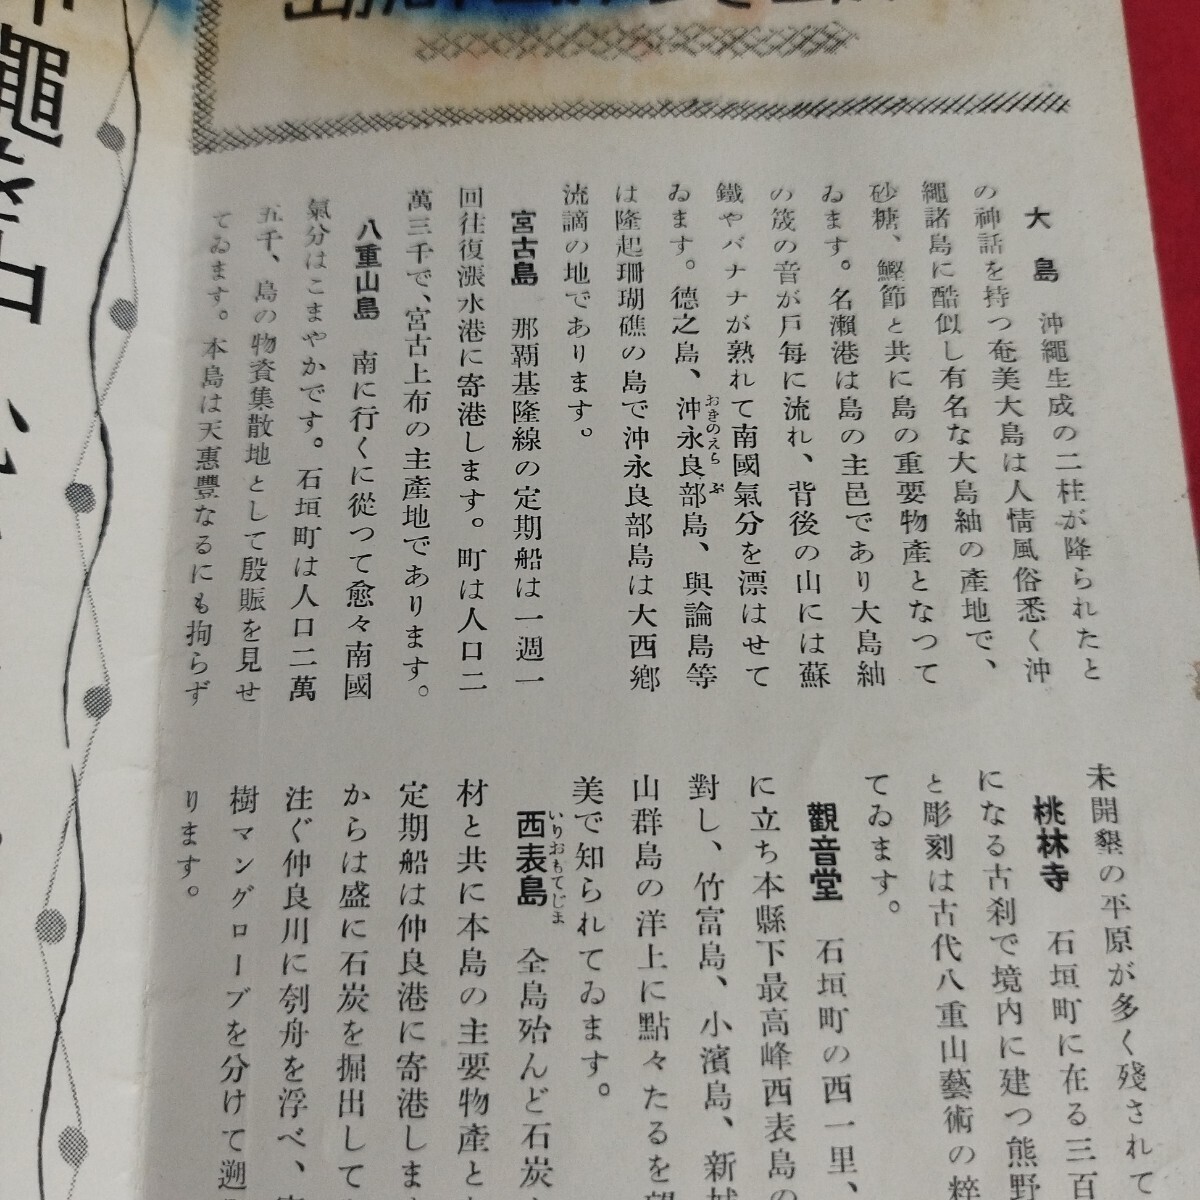 大島　沖繩生成の二柱が降られたと
の神話を持つ奄美大島は人情風俗悉く沖
繩諸島に酷似し有名な大島紬の產地で、
砂糖、鰹節と共に島の重要物產となつて
ゐます。名瀨港は島の主邑であり大島紬
の筬の音が戶每に流れ、背後の山には蘇
鐵やバナナが熟れて南國氣分を漂はせて
ゐます。德之島、沖永良部島、與論島等
おきのえらぶ
は隆起珊瑚礁の島で沖永良部島は大西鄉
流謫の地であります。
宮古島　那覇基隆線の定期船は一週一
回往復漲水港に寄港します。町は人口二
萬三千で、宮古上布の主產地であります。
八重山島　南に行くに從つて愈々南國
氣分はこまやかです。石垣町は人口二萬
五千、島の物資集散地として殷賑を見せ
てゐます。本島は天惠豐なるにも拘らず
未開墾の平原が多く殘されて
桃林寺　石垣町に在る三百
になる古刹で境内に建つ熊野
と彫刻は古代八重山藝術の粹
てゐます。
觀音堂　石垣町の西一里、
に立ち本縣下最高峰西表島の
對し、竹富島、小濱島、新城
山群島の洋上に點々たるを望
美で知られてゐます。
西表島　全島殆んど石炭
いりおもてじま
材と共に本島の主要物產と
定期船は仲良港に寄港しま
からは盛に石炭を掘出して
注ぐ仲良川に刳舟を浮べ、
樹マングローブを分けて遡
ります。